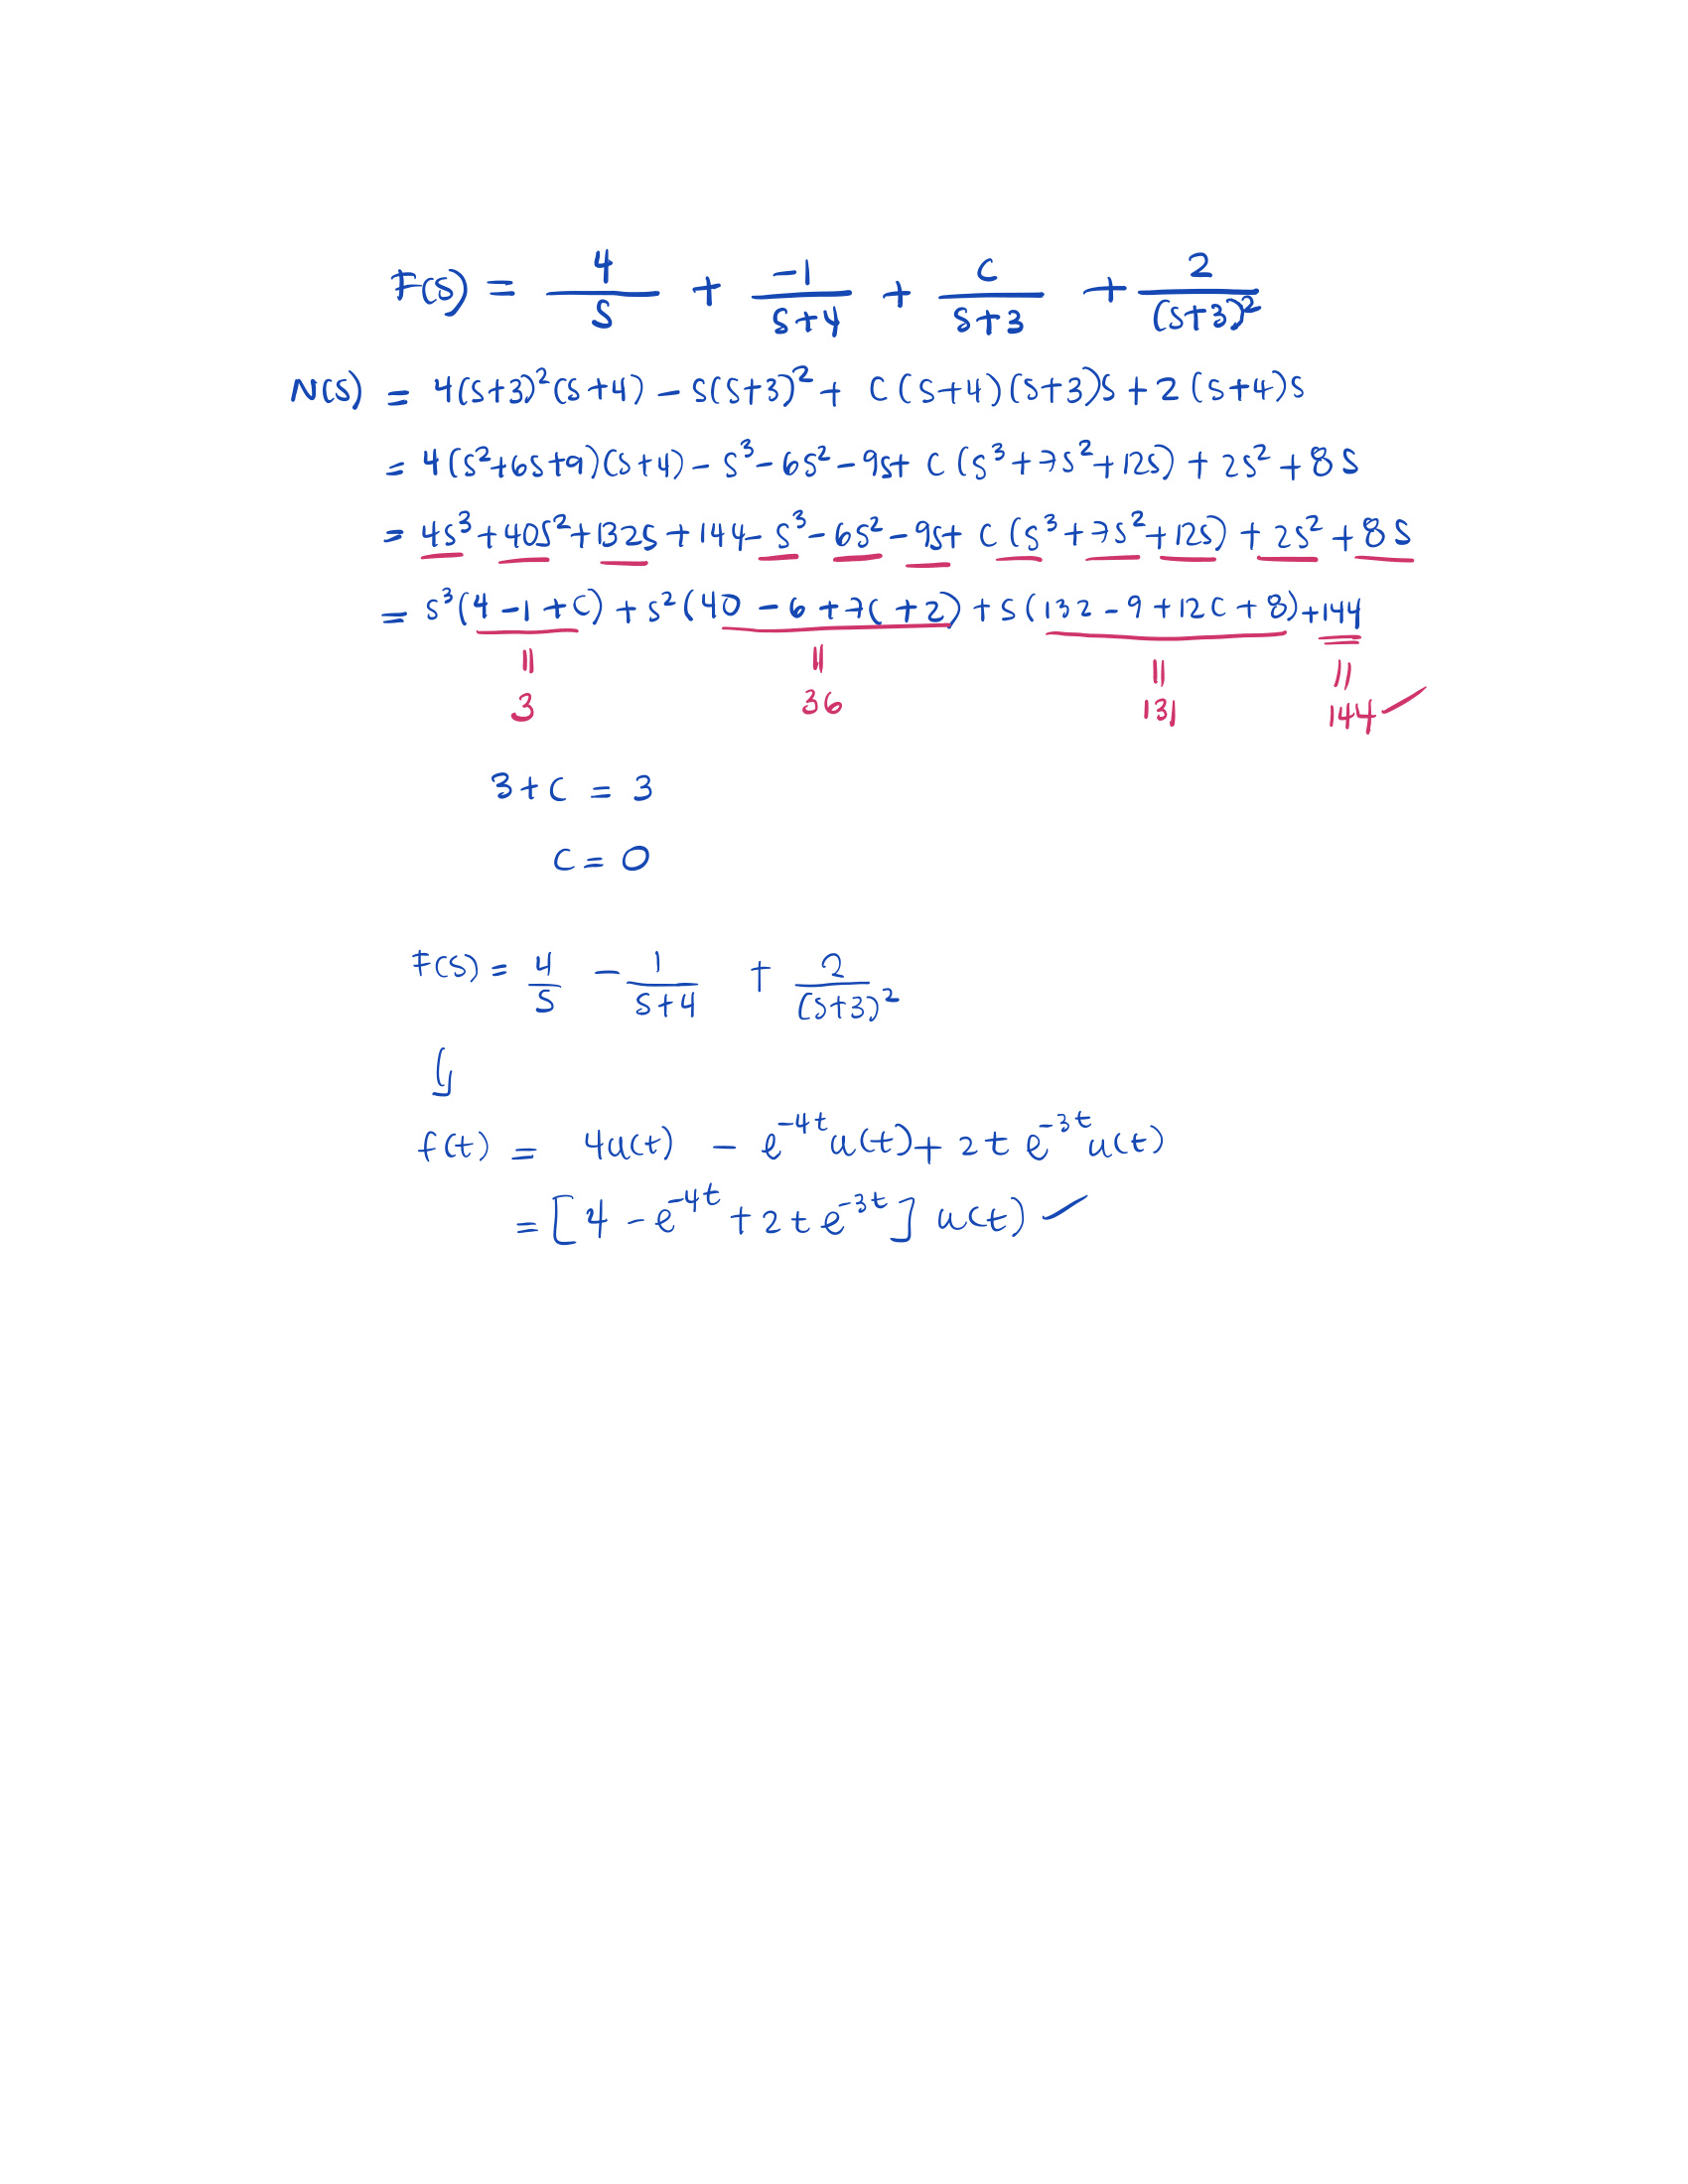 F(s) = 4/s + -1/(s+4) + C/(s+3) + 2/(s+3)²
N(s) = 4(s+3)²(s+4) - s(s+3)² + C(s+4)(s+3)s + 2(s+4)s
= 4(s²+6s+9)(s+4) - s³ - 6s² - 9s + C(s³+7s²+12s) + 2s² + 8s
= 4s³+40s²+132s+144 - s³ - 6s² - 9s + C(s³+7s²+12s) + 2s² + 8s
= s³(4-1+C) + s²(40-6+7C+2) + s(132-9+12C+8)+144
= = = =
3 36 131 144 ✓
3+C = 3
C = 0
F(s) = 4/s - 1/(s+4) + 2/(s+3)²
f(t) = 4u(t) - e^{-4t}u(t) + 2te^{-3t}u(t)
= [4 - e^{-4t} + 2te^{-3t}] u(t) ✓